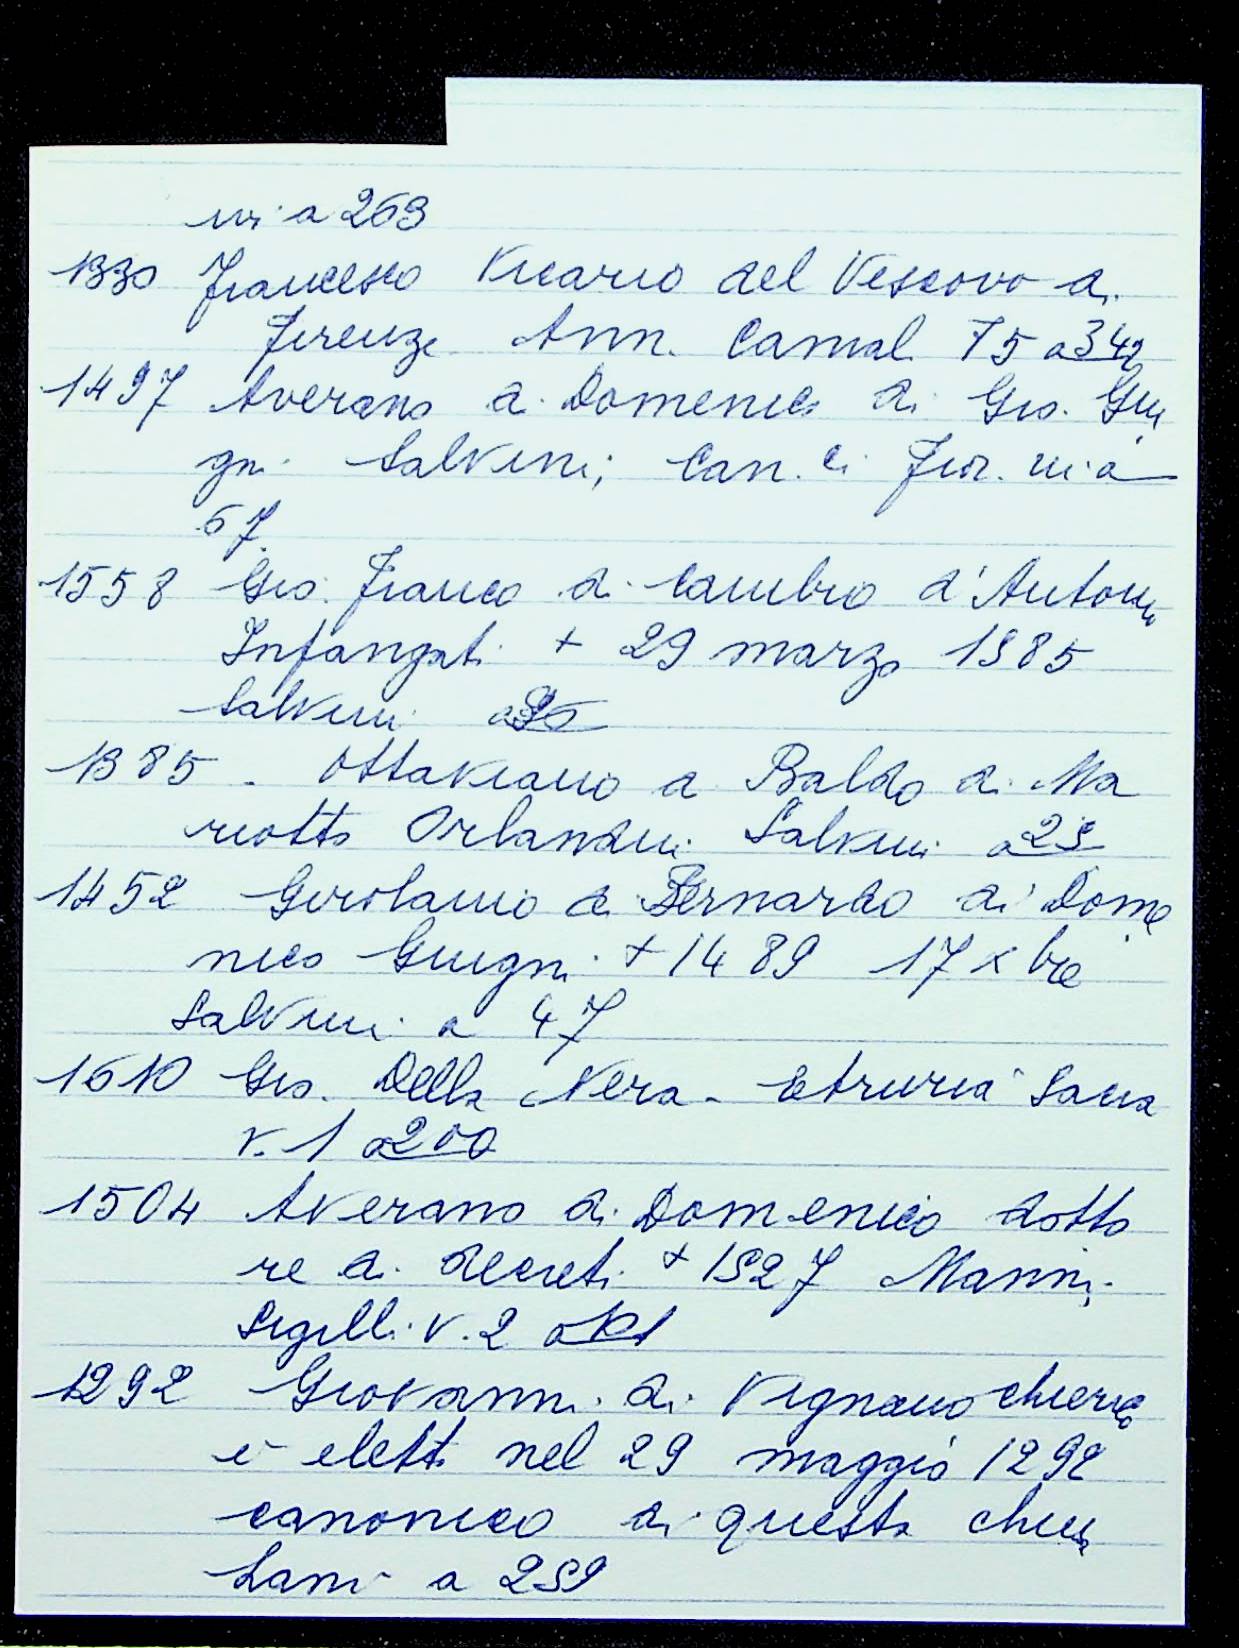 ivi a 263
1330 Francesco Vicario del Vescovo di
Firenze Ann. Camal. T5 a 342
1497 Averano di Domenico di Gio. Giu
gni Salvini, Can. ci Fior. ivi a
67
1558 Gio. Franco di Cambio d'Antonio
Infangati + 29 marzo 1585
Salvini a
1385. Ottaviano di Baldo di Ma
riotto Orlandini Salvini a 25
1452 Girolamo di Bernardo di Dome
nico Giugni + 1489 17 xbre
Salvini a 47
1610 Gio. Della Nera - Etruria Sacra
v. 1 a 200
1504 Averano di Domenico dotto
re di decreti + 1527 Manni,
Sigilli v. 2 a
1292 Giovanni di Vignano chierico
è eletto nel 29 maggio 1292
canonico di questa chiesa
Lami a 259